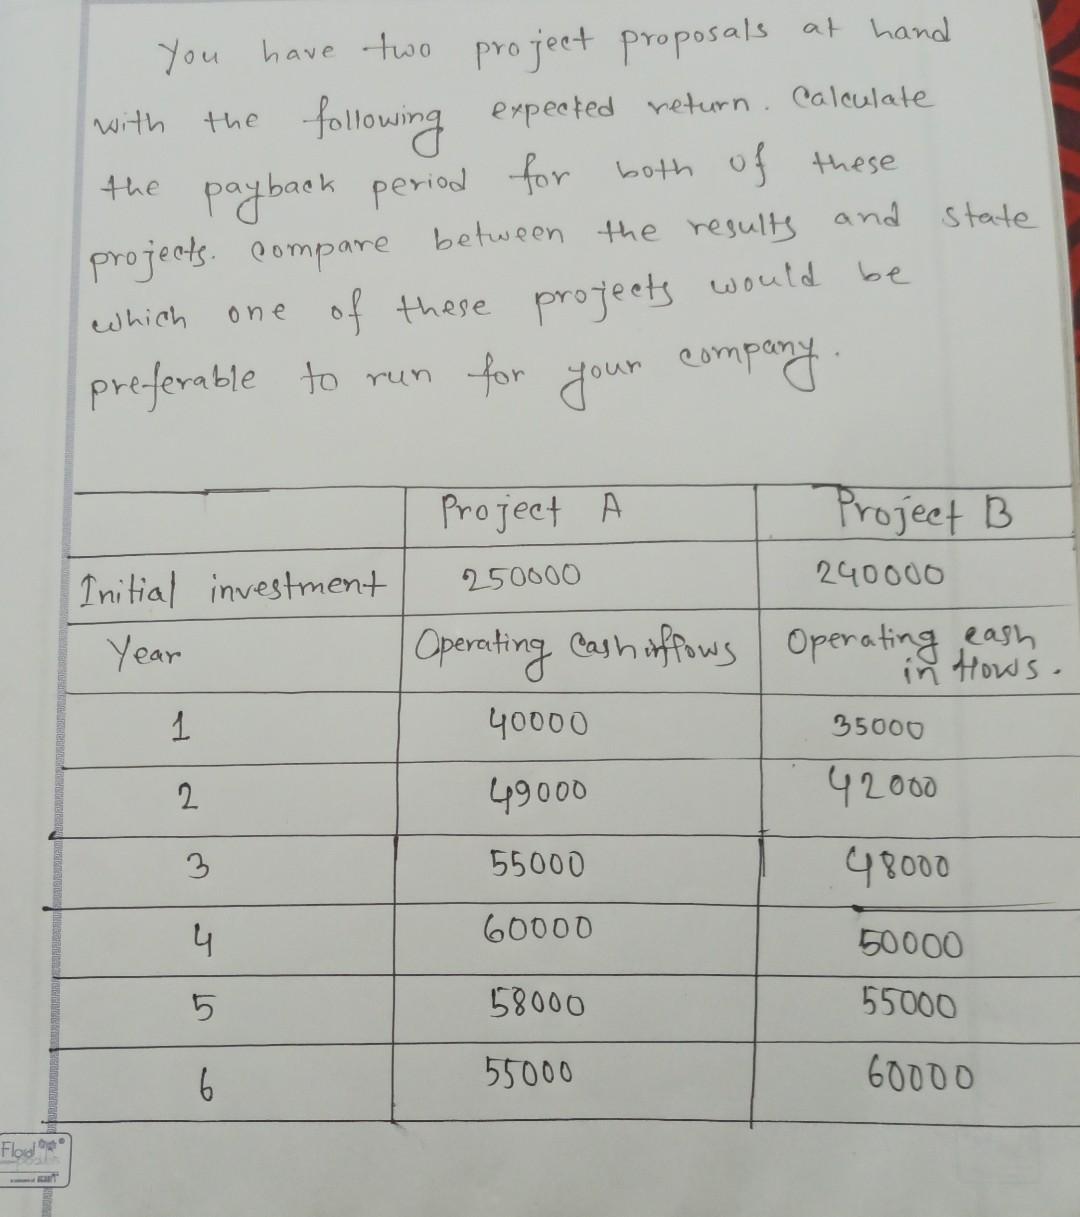 You have two project proposals at hand
with the following expected return. Calculate
the payback period for both of these
projects. compare between the results and state
which one of these projects would be
preferable to run for your company.
Project A Project B
Initial investment 250000 240000
Year Operating Cash inflows Operating cash
in flows.
1 40000 35000
2 49000 42000
3 55000 48000
4 60000 50000
5 58000 55000
6 55000 60000